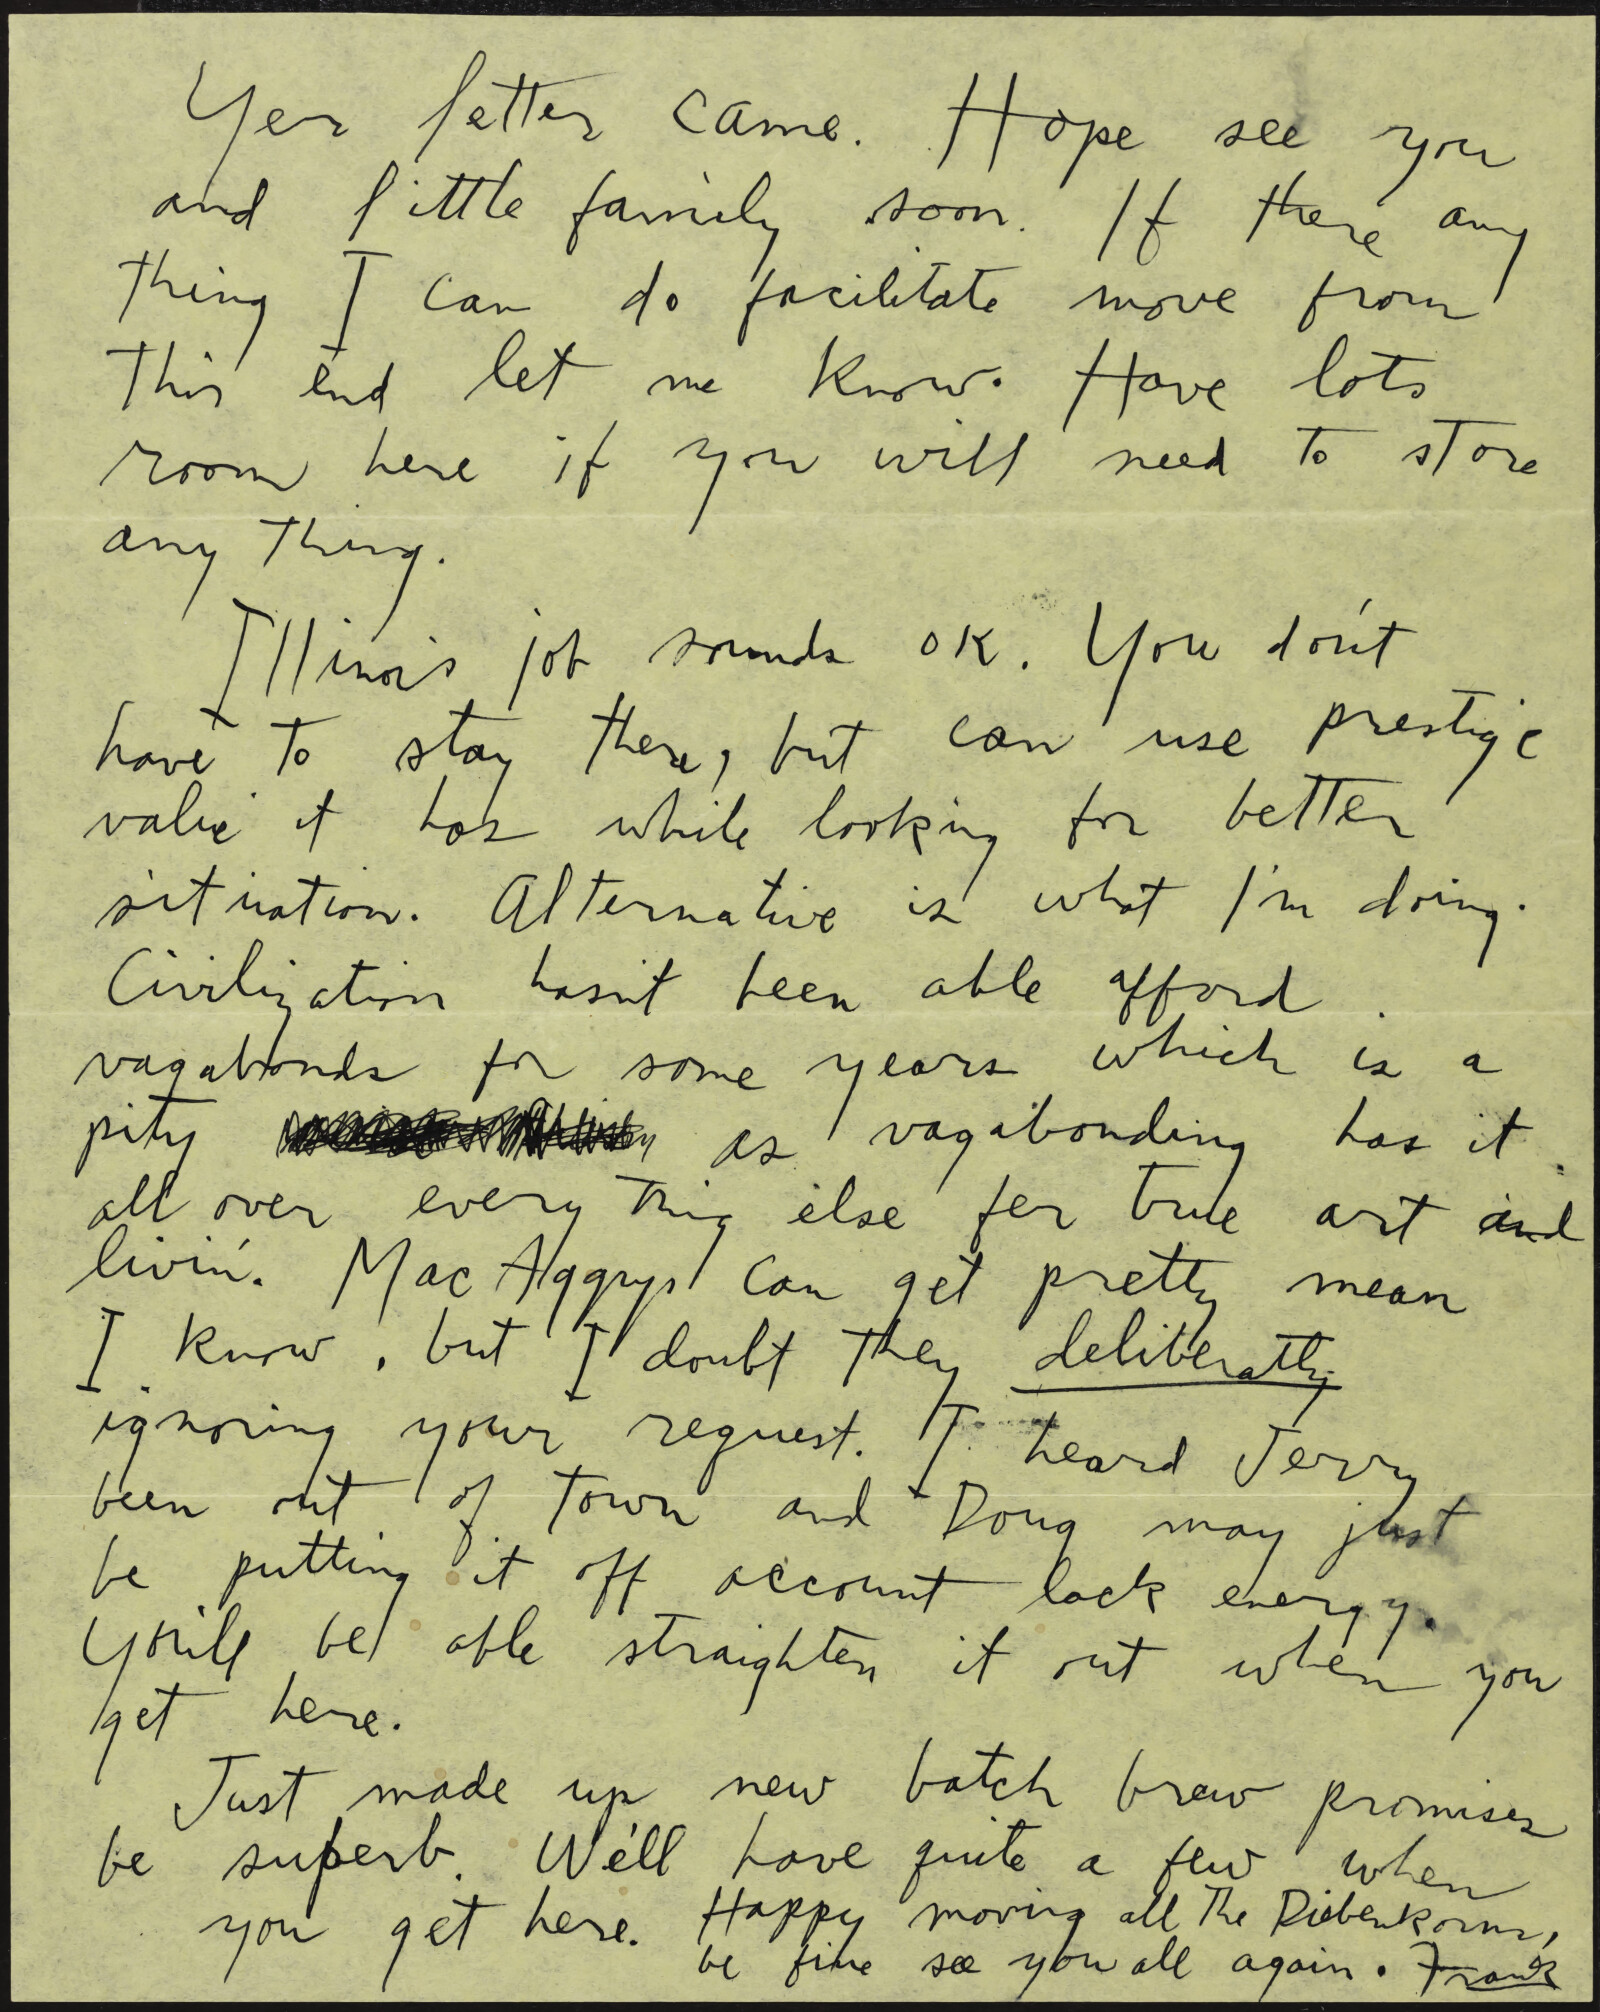 Yer letter came. Hope see you
and little family soon. If there any
thing I can do facilitate move from
this end let me know. Have lots
room here if you will need to store
any thing.
Illinois job sounds OK. You don't
have to stay there, but can use prestige
value it has while looking for better
situation. Alternative is what I'm doing.
Civilization hasn't been able afford
vagabonds for some years which is a
pity as vagabonding has it
all over every thing else fer true art and
livin'. MacAggys can get pretty mean
I know, but I doubt they deliberatly
ignoring your request. I heard Jerry
been out of town and Doug may just
be putting it off account lack energy.
You'll be able straighten it out when you
get here.
Just made up new batch brew promises
be superb. We'll have quite a few when
you get here. Happy moving all the Diebenkorns,
be fine see you all again. Frank